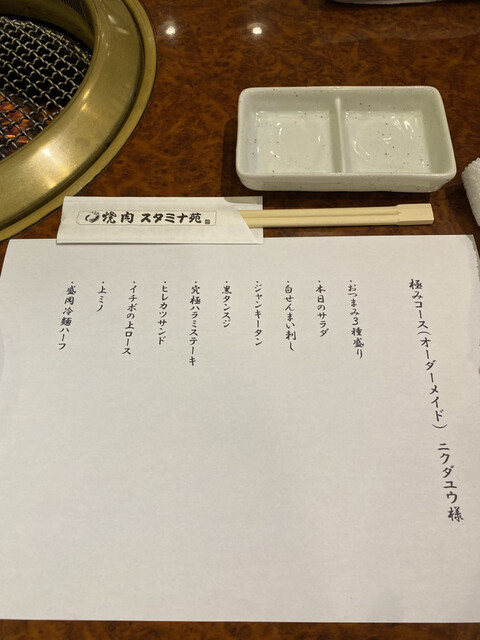 焼肉 スタミナ苑
極みコース(オーダーメイド) ニクダユウ様
・おつまみ3種盛り
・本日のサラダ
・白せんまい刺し
・ジャンキータン
・黒タンスジ
・究極ハラミステーキ
・ヒレカツサンド
・イチボの上ロース
・上ミノ
・盛岡冷麺ハーフ